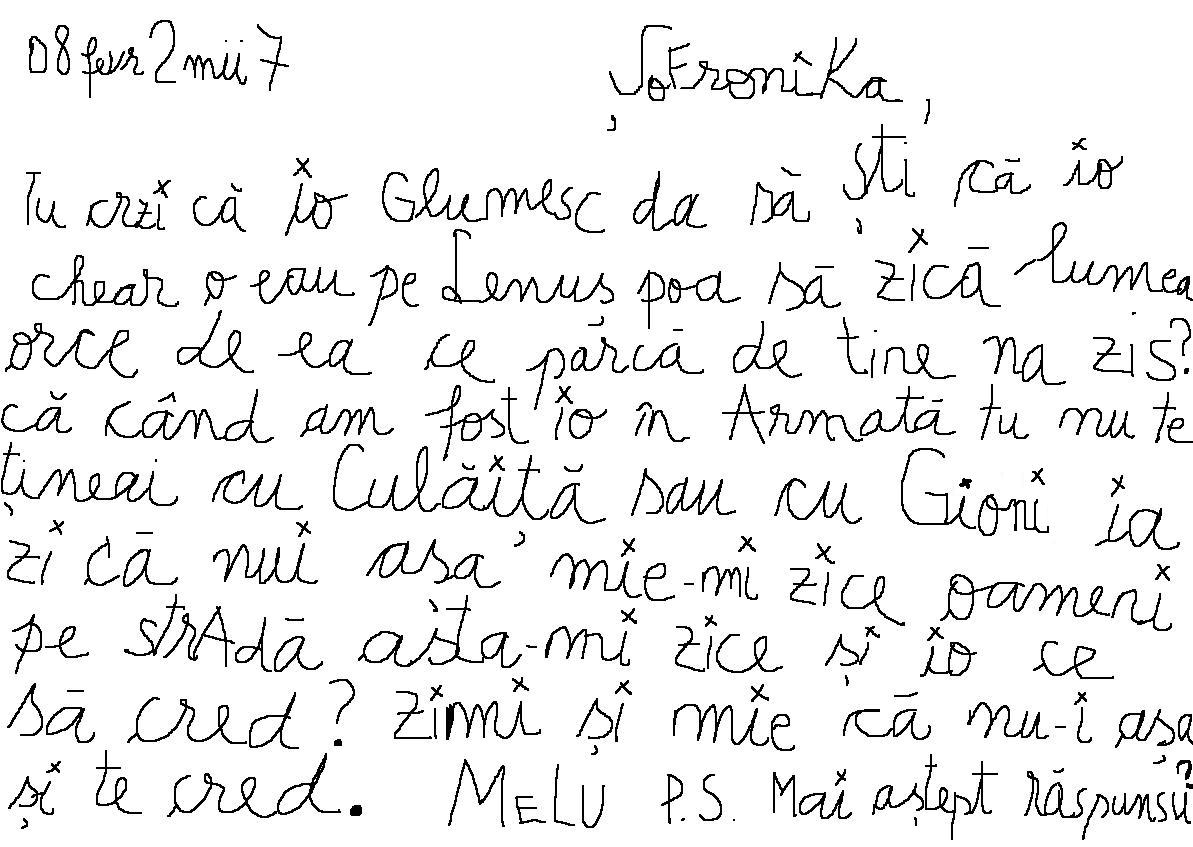 08 fevr 2 mii 7 ȘoFroniKa,
Tu crzi că io Glumesc da să ști că io
chear o eau pe Lenuș poa să zică lumea
orce de ea ce părcă de tine na zis?
că când am fost io în Armată tu nu te
țineai cu Culăiță sau cu Gioni ia
zi că nui asa mie-mi zice oameni
pe strAdă asta-mi zice și io ce
să cred? zimi și mie că nu-i așa
și te cred. MELU P.S. Mai aștept răspunsu?